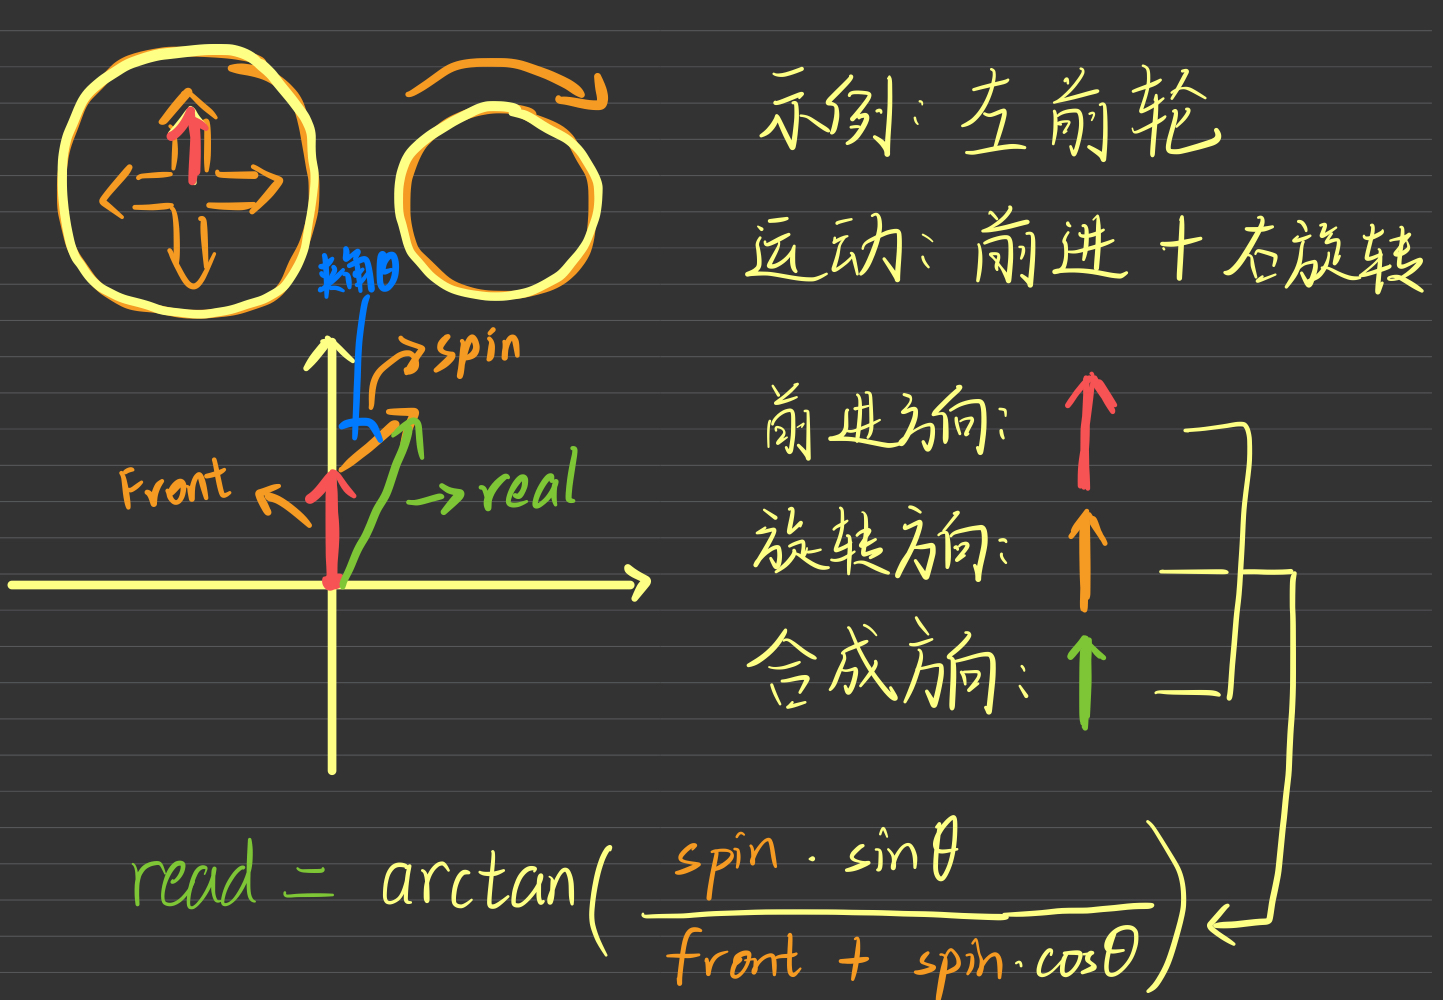 示例：左前轮
运动：前进 + 右旋转
夹角θ
spin
Front
real
前进方向：
旋转方向：
合成方向：
read = arctan( spin · sinθ / front + spin · cosθ )